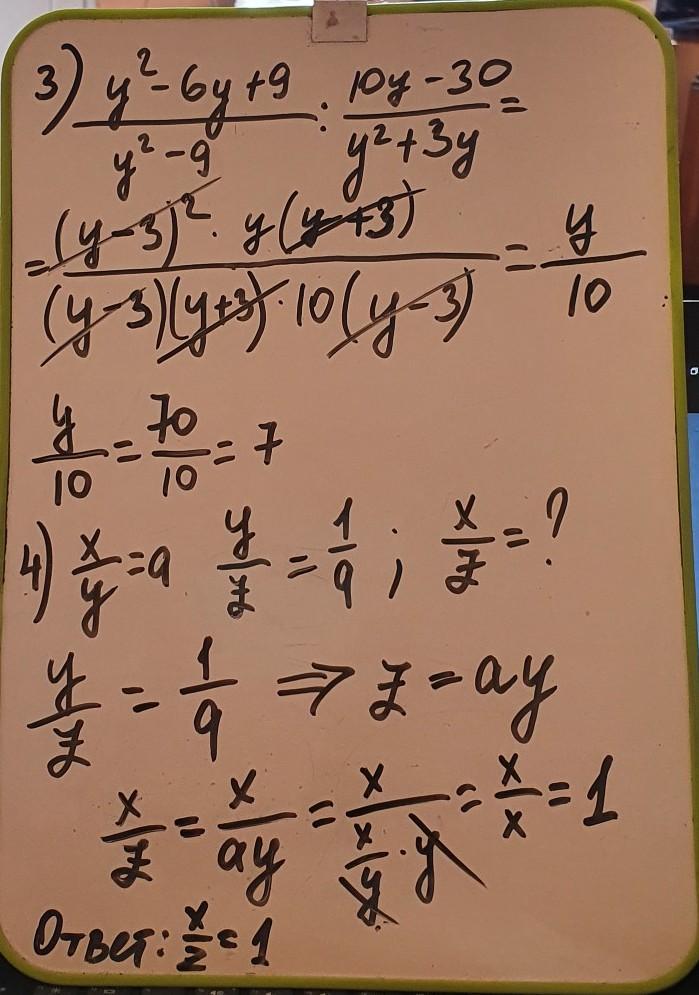 3) (y² - 6y + 9)/(y² - 9) : (10y - 30)/(y² + 3y) =
= ((y - 3)² · y(y + 3))/((y - 3)(y + 3) · 10(y - 3)) = y/10
y/10 = 70/10 = 7
4) x/y = a y/z = 1/a ; x/z = ?
y/z = 1/a ⇒ z = ay
x/z = x/(ay) = x/(x/y · y) = x/x = 1
Ответ: x/z = 1